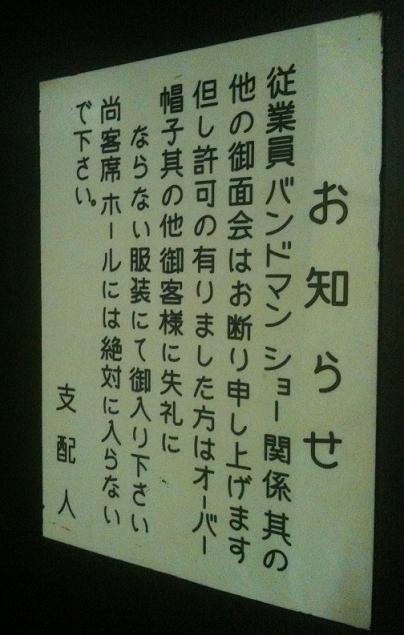 お知らせ
従業員バンドマンショー関係其の
他の御面会はお断り申し上げます
但し許可の有りました方はオーバー
帽子其の他御客様に失礼に
ならない服装にて御入り下さい
尚客席ホールには絶対に入らない
で下さい。
支配人